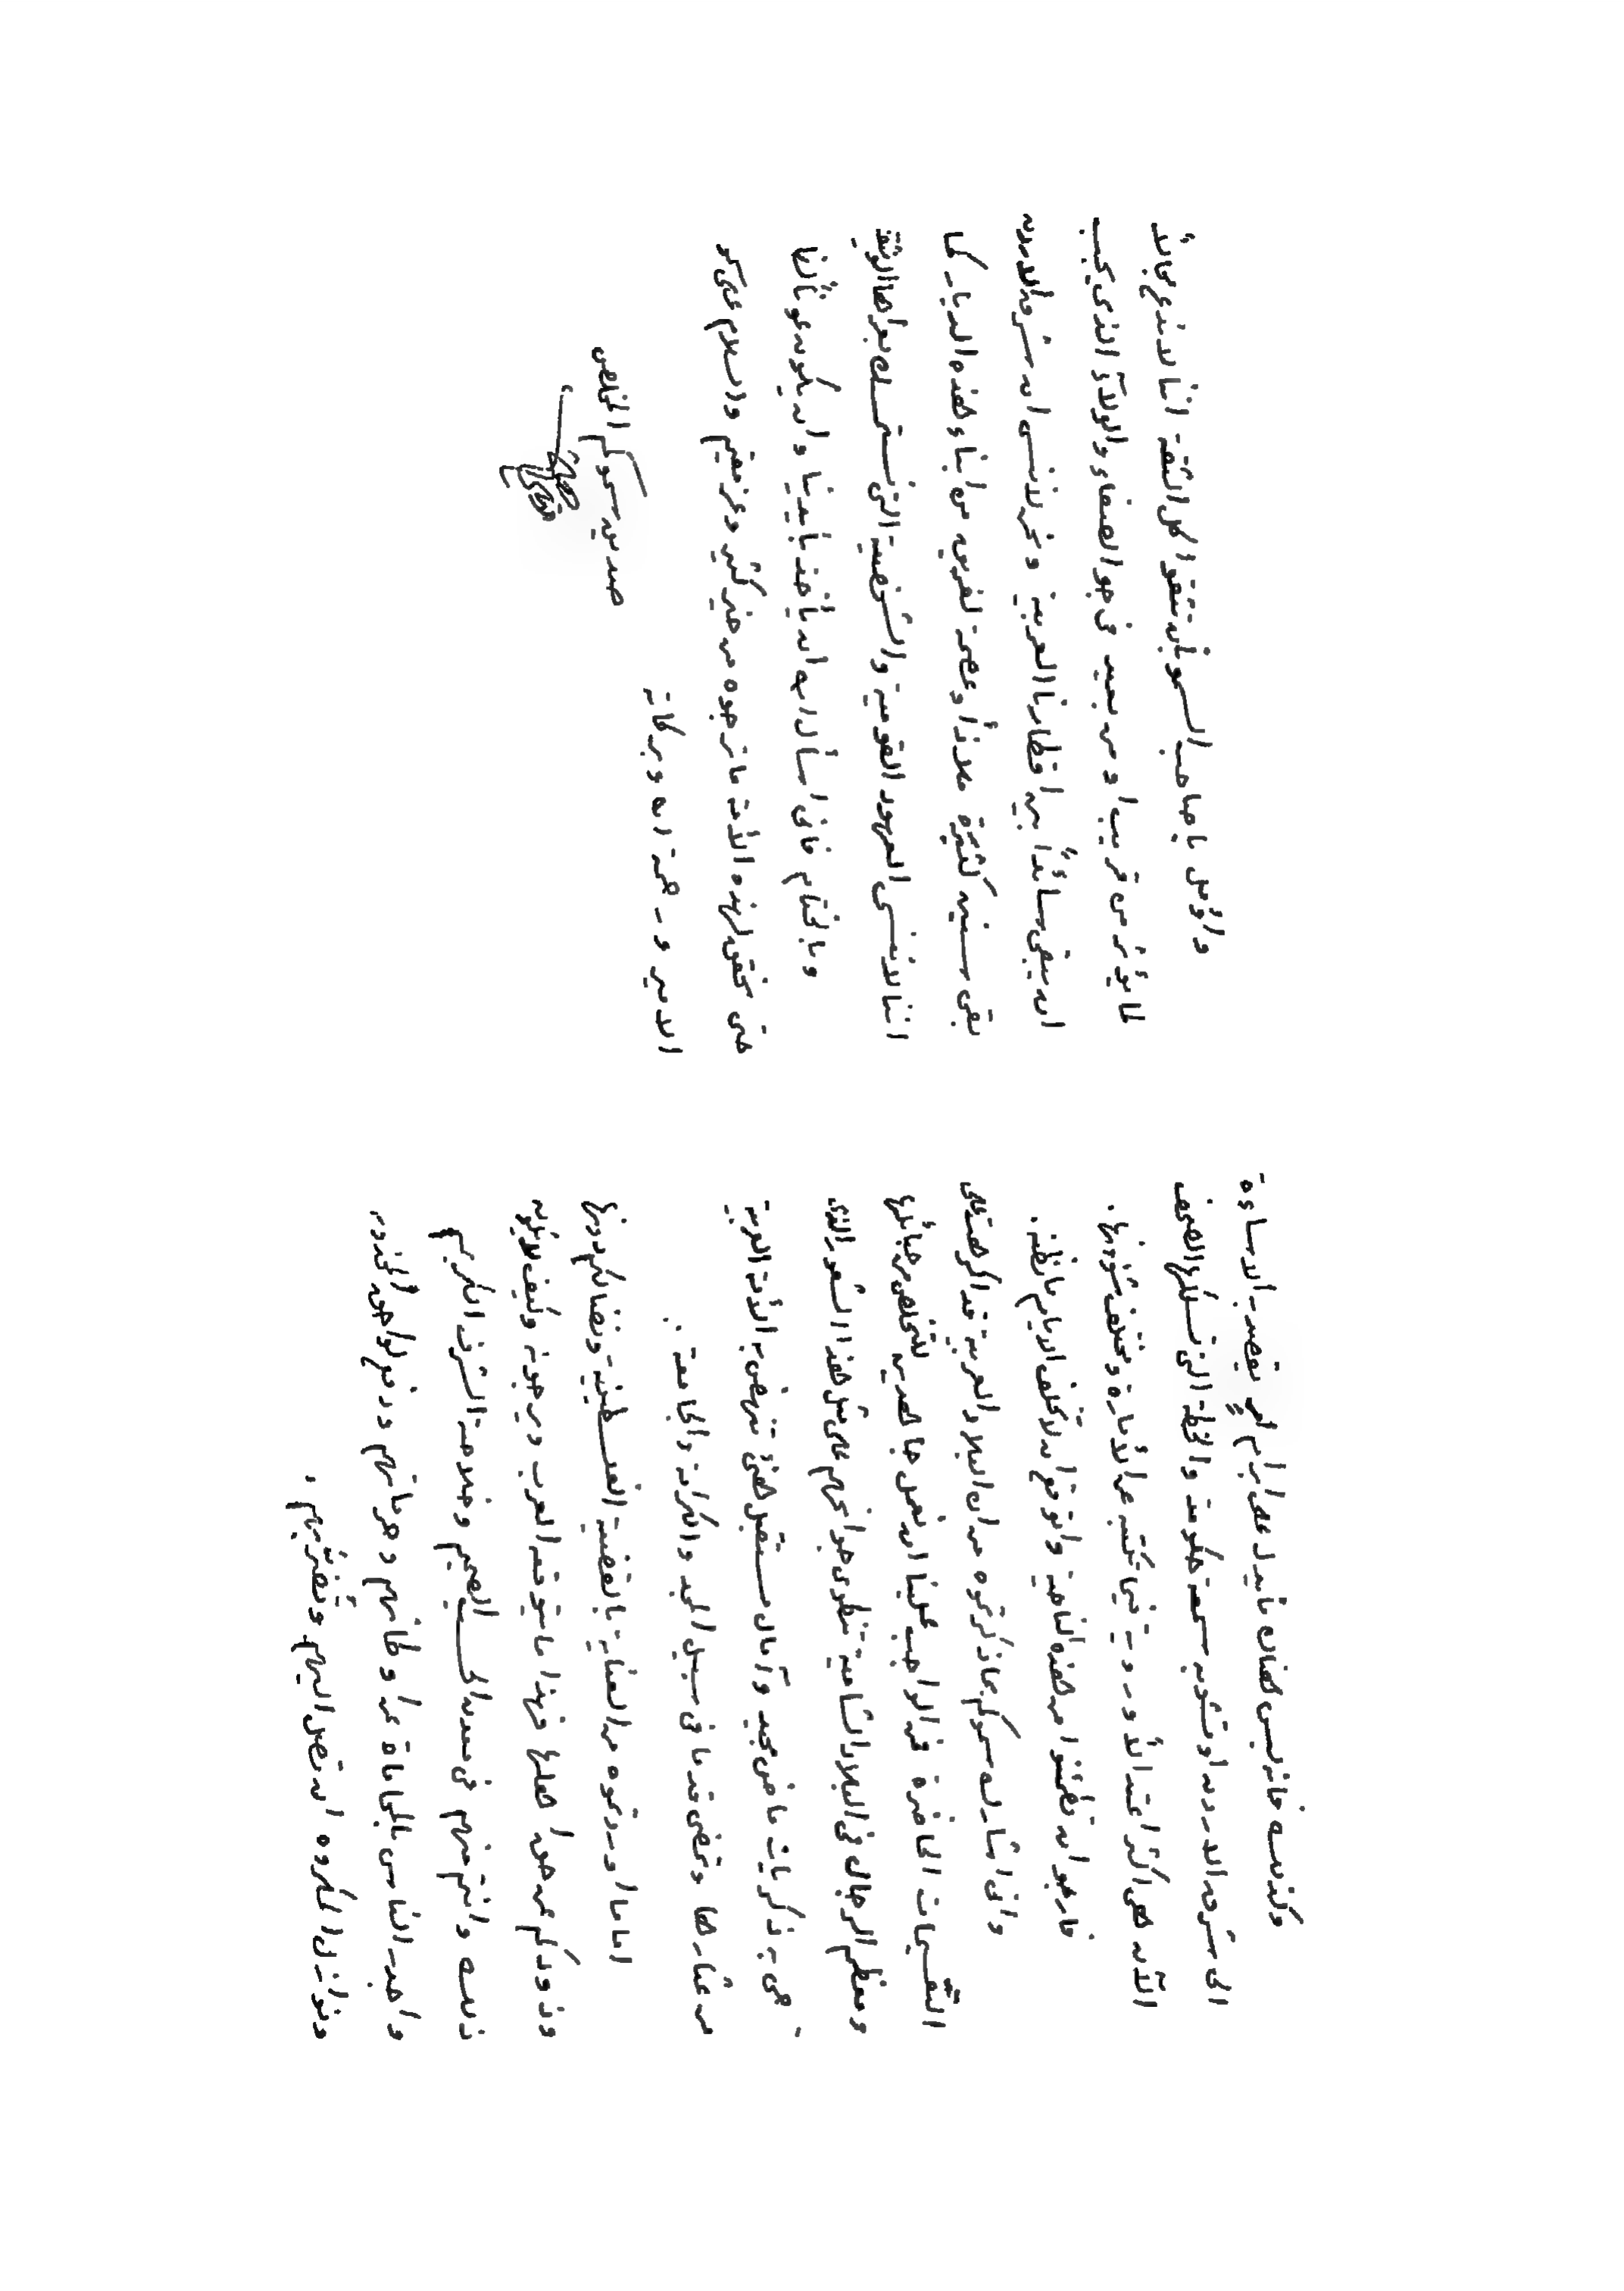 وكذلك فانه ليس هناك ما يدل على ابرام أمرٍ يقصد به الاساءة
الى شرق الاردن او تشويه سمعة حكومته والخطة التي تسلكها الصحف
الآن هي اكثر اعتدالاً ورويّة فيما تكتبه عن الأمارة ومختلف شؤونها.
فارجو ان تطمئنوا من هذه الناحية واتوقع ان لا تختلف الايام ما نظنه.
واني اشارك سموكم بما ذكرتموه من ان البلاد العربية قد انهكها على
التقسيمات الحاضرة فمن الواجب علينا ان نعمل جاهدين للتخلص من حبائلها
ومعظم الرجال في البلاد الشامية تنطوي جوانحهم على مثل هذا الشعور الذي
نحيي به ذكريات ماضٍ مجيد وآمال مستقبل هنئ تنهض به الأمة العربية
من عثارها وتمضي قدما في سبيل المجد والكرامة والجامعة.
اما ما اوردتموه من العناية بالقضية الفلسطينية ونضالكم دونها
وذودكم عن حوضها فهذا ما يتوقعه العرب ويرجونه وكيف لا يكون
ذلك وانتم منهم في معدن الحسب الصميم وضلاحة الشرف الكريم
واجدر الناس بالمحاماة عن اوطانهم وحرياتهم ودفع لواحق المحذور
ونوازل المكروه ان تصل اليهم وتضرّ بهم.
واؤمل يا صاحب السمو بأن تثقوا كل الثقة اننا لا ندع مجالاً
لما يؤثر من قريب او من بعيد في جو الصفاء والولاء الذي يجب
ان يبقى سائداً بين اقطارنا العربية ونحن لا ننسى ان شرق الاردن
بقي سنين كثيرة ملاذاً وعصمة لفريق من ابناء هذه الديار كما
اننا لا ننسى العهود القومية والشخصية التي نستمسك بعراها الوثيقة
وبالختام فاني اسأل الله ان يأخذ بأيدينا وان يكون عوناً لنا
حتى نحقق لهذه الأمة ما نرجوه من خير كثير وعز مقيم والسلام على سمو
الامير ورحمة الله وبركاته
صديق سموكم المخلص